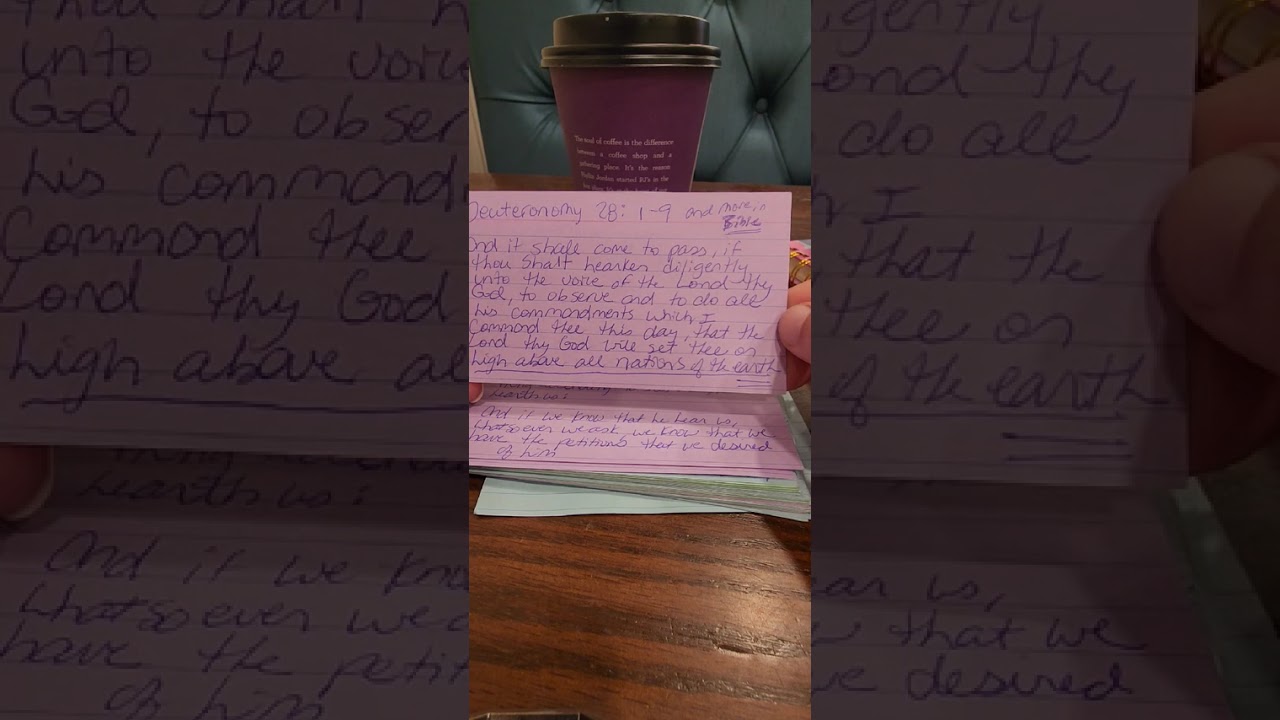 The soul of coffee is the difference
between a coffee shop and a
gathering place. It's the reason
started BJ's in the
Deuteronomy 28: 1-9 and more in
Bible
And it shall come to pass, if
thou shalt hearken diligently
unto the voice of the Lord thy
God, to observe and to do all
his commandments which I
Command thee this day, that the
Lord thy God will set thee on
high above all nations of the earth
heareth us:
And if we know that he hear us,
whatsoever we ask, we know that we
have the petitions that we desired
of him